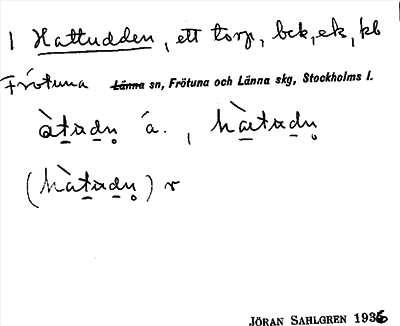 1 Hattudden, ett torp, bck, ek, kb
Frötuna Länna sn, Frötuna och Länna skg, Stockholms l.
àtudn̥ á., hàtudn̥
(hàtudn̥) r
JÖRAN SAHLGREN 1936